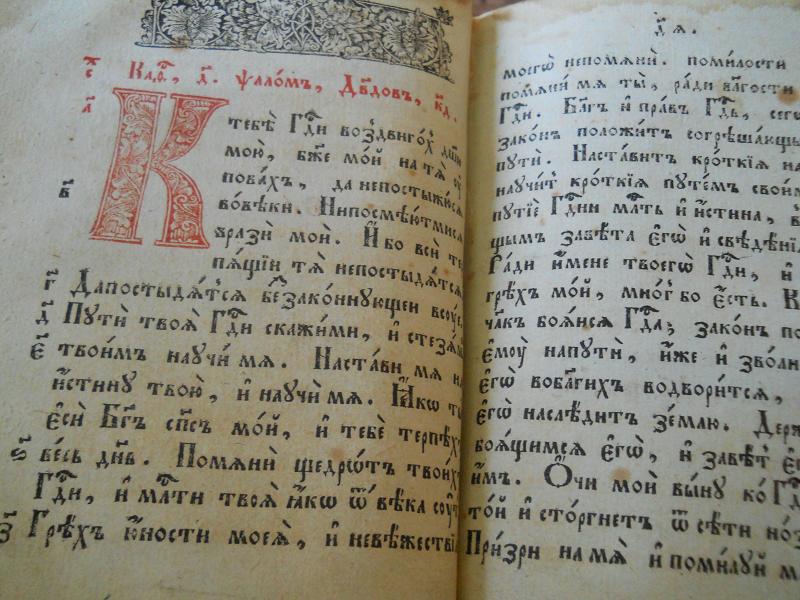 Каѳ, д҃. ѱало́мъ, Дв҃довъ, к҃д.
К тебѣ̀ Гд҇и воздвиго́х дш҃ꙋ
мою̀, бж҃е мо́й на тѧ ᲂу҆
пова́хъ, да непостыжꙋсѧ
вово́ѣки. Нипосмѣю́тмисѧ
врази̂ мои̂. И҆ бо всѝ те
пѧ́щїи тѧ̀ непостыдѧ́тсѧ
г҃ Дапостыдѧ́тсѧ беззаконнꙋющеи всꙋе,
д҃ Пꙋти̂ твоѧ̂ Гд҇и скажи́ми, и҆ стезѧ́м
є҃ твои́м наꙋчи́ мѧ. Наста́ви мѧ на
и҆́стинꙋ твою̀, и҆ наꙋчи́ мѧ. Ꙗ҆́кѡ ты̀
є҆сѝ Бг҃ъ сп҃съ мо́й, и҆ тебѐ терпѣ́х
ѕ҃ весь дн҃ь. Помѧнѝ щедрѡ́тъ твои́х
Гд҇и, и҆ мл҇ти твоѧ̂ ꙗ҆́кѡ ѿ вѣ́ка сꙋ́т
з҃ Грѣ́хъ ю҆́ности моеѧ̀, и҆ невѣ́жествїѧ
д҃ѧ.
моегѡ̀ непомѧнѝ. помилости
помѧни́ мѧ ты̀, ради бл҃гости
Гд҇и. Бл҃гъ и҆ пра́въ Гд҇ь, сегѡ
зако́нъ положи́тъ согрѣша́ющым
пꙋтѝ. Наста́витъ кро́ткїѧ на
наꙋчи́т кро́ткїѧ пꙋте́м свои́м
пꙋтїѐ Гд҇ни мл҇ть и҆ и҆́стина, в
щымъ завѣ́та є҆гѡ̀ и҆ свѣдѣ́нїѧ
Ради и҆́мене твоегѡ̀ Гд҇и, и҆
грѣ́хъ мо́й, мно́г бо є҆́сть. К
чл҃къ боѧ́исѧ Гд҇а; зако́нъ по
є҆мꙋ̀ напꙋтѝ, и҆́же и҆ зво́ли
є҆гѡ̀ вобл҃ги́хъ водвори́тсѧ,
є҆гѡ̀ наслѣ́дитъ зе́млю. Держ
боѧ́щимсѧ є҆гѡ̀, и҆ завѣ́т є҆
и҆́мъ. Ѻ҆́чи мои̂ вы́нꙋ ко Гд҇
то́й и҆ сто́ргнетъ ѿ сѣ́ти но́з
При́зри на мѧ̀ и҆ поми́лꙋй м